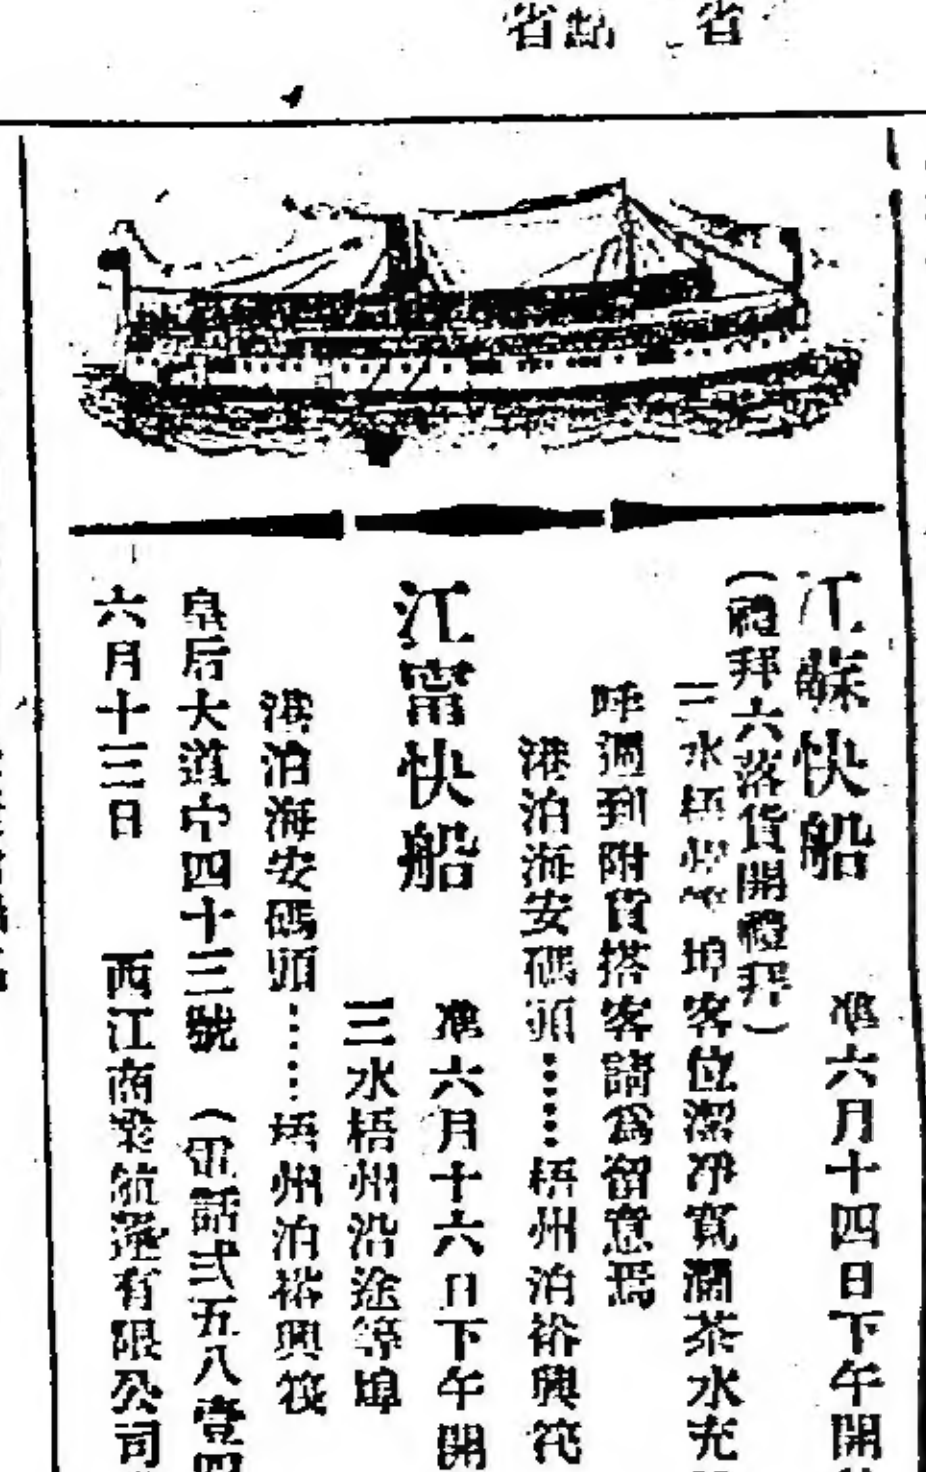 省 㸃省
江蘇快船 准六月十四日下午開
(禮拜六落貨開禮拜)
三水梧州等埠客位潔凈寬濶茶水充
呼週到附貨搭客請爲留意焉
港泊海安碼頭……梧州泊裕興筏
江甯快船 准六月十六日下午開
三水梧州沿途等埠
港泊海安碼頭……梧州泊裕興筏
皇后大道中四十三號 (電話弍五八壹四
六月十三日 西江商業航運有限公司